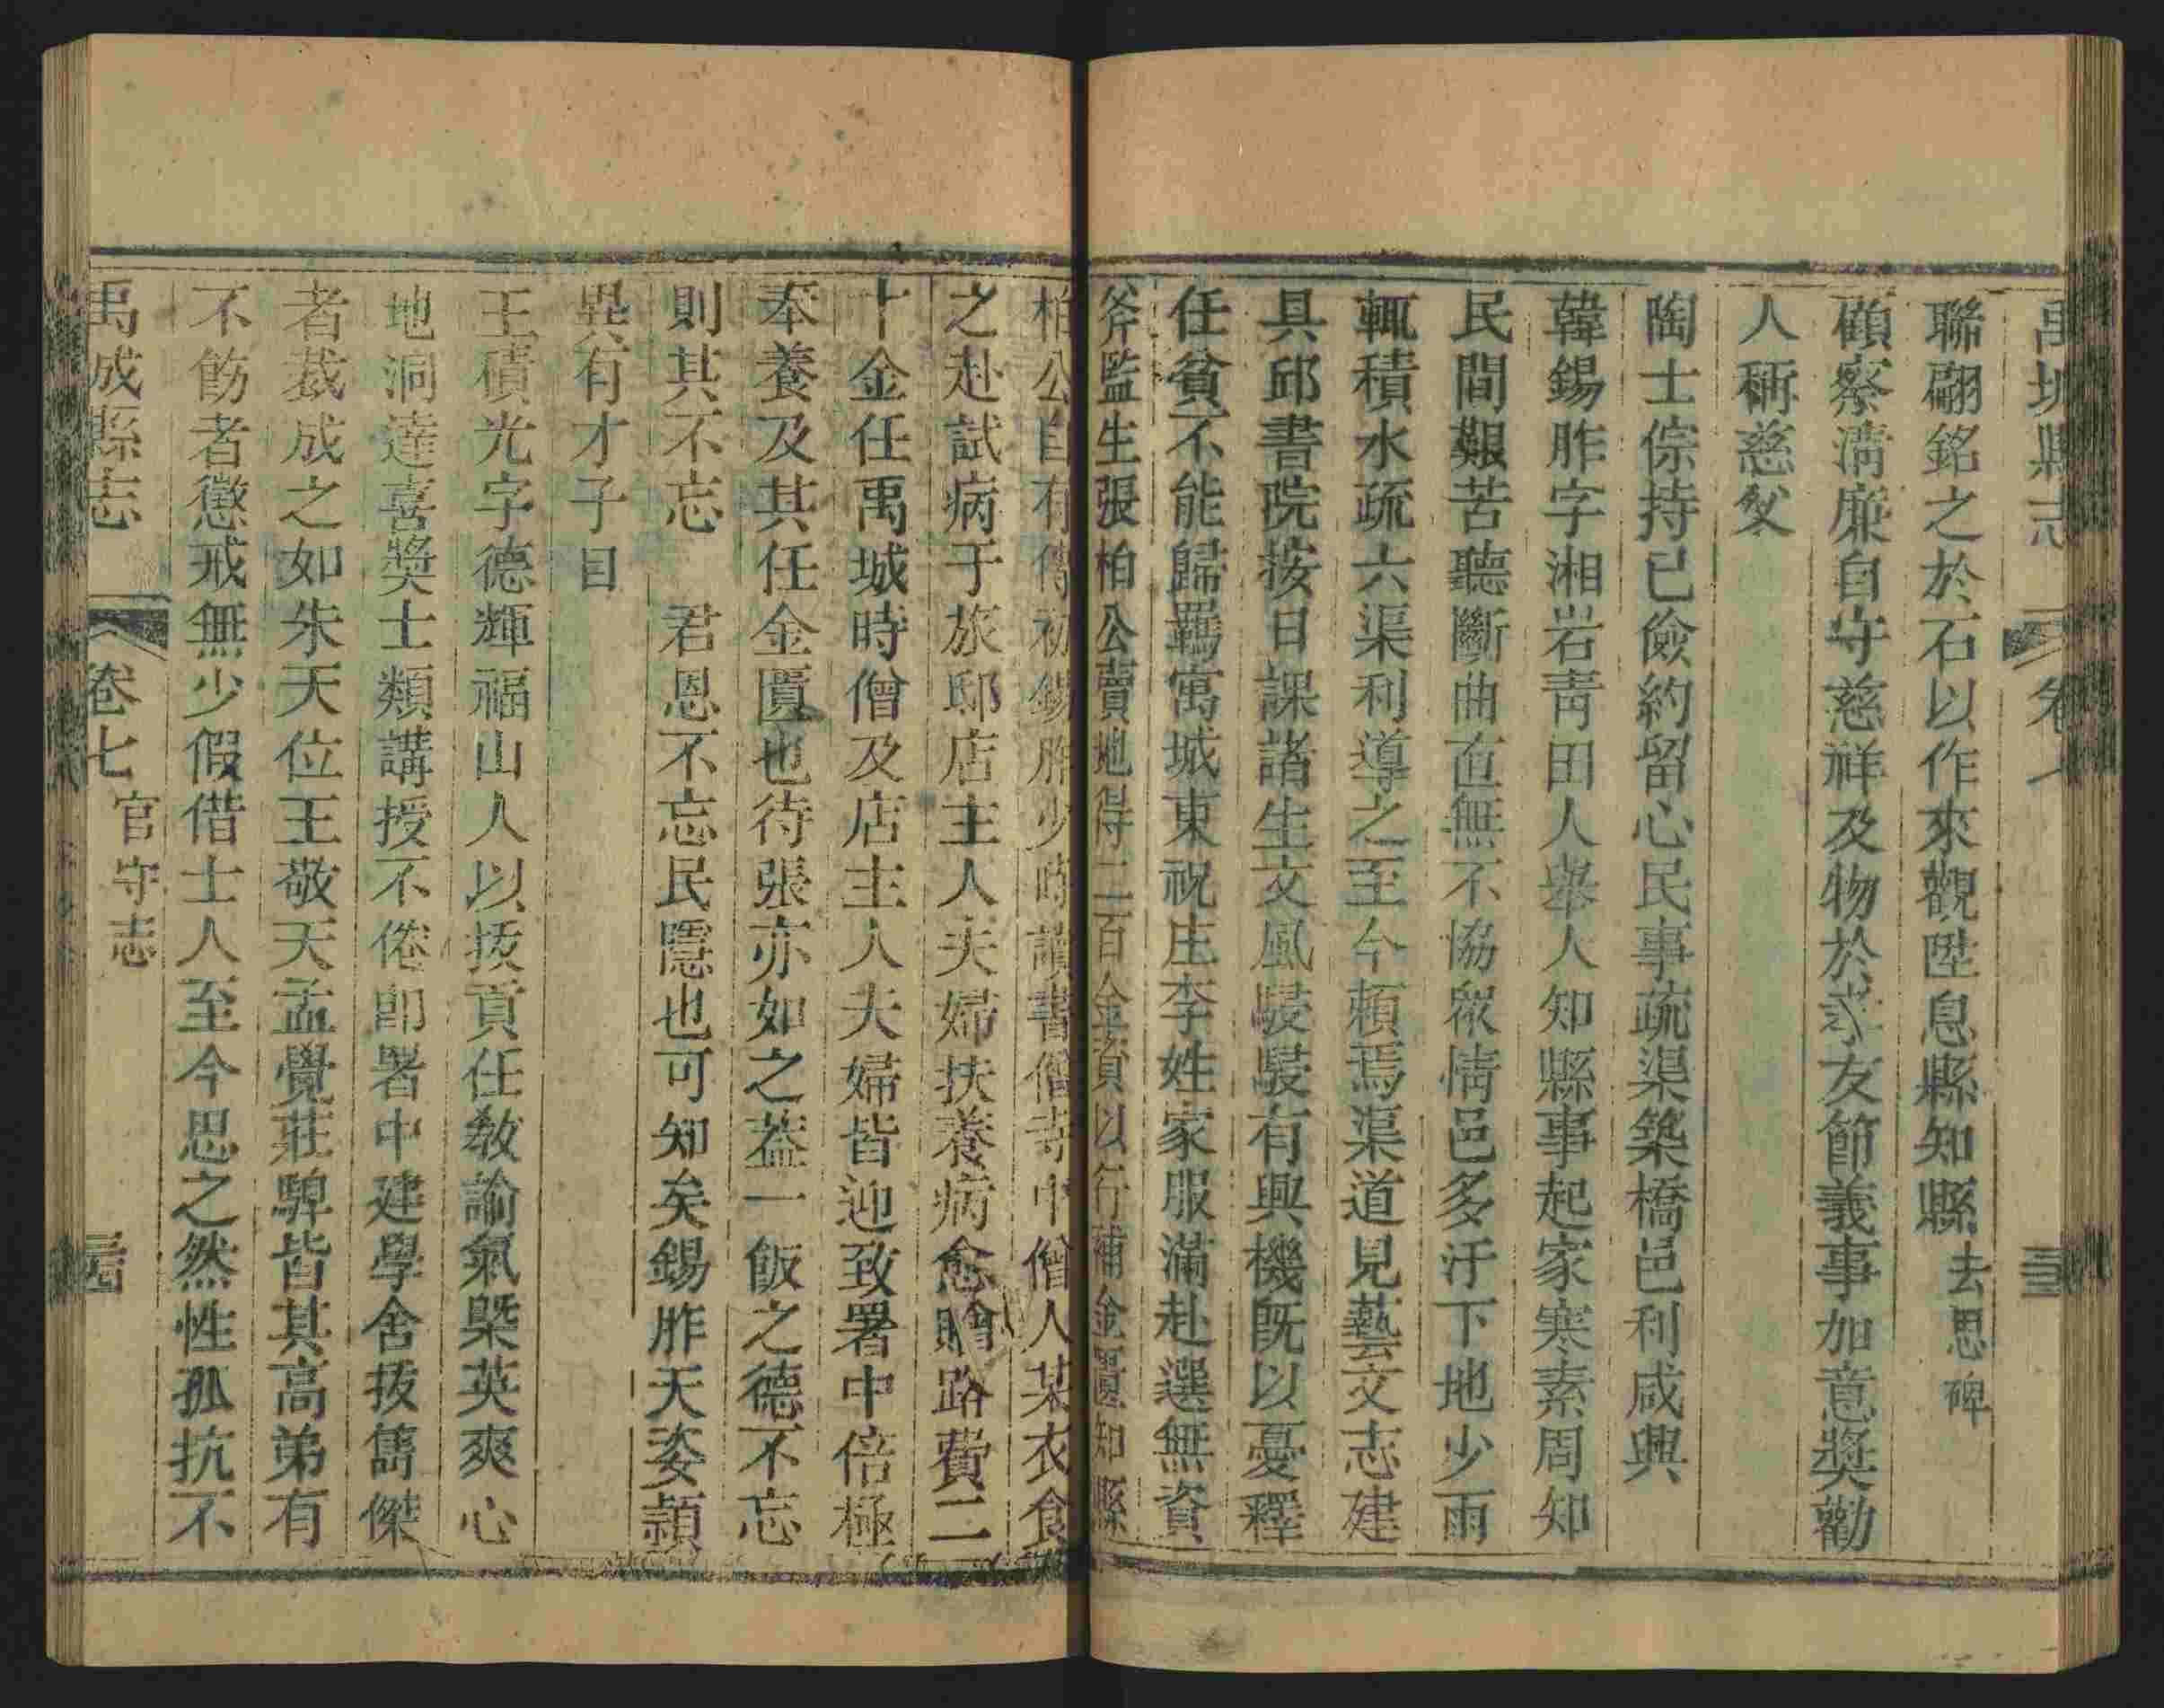 禹城縣志 卷七
聯翩銘之於石以作來觀陞息縣知縣去思碑
顧察淸廉自守慈祥及物於孝友節義事加意獎勸
人稱慈父
陶士倧持已儉約留心民事疏渠築橋邑利咸興
韓錫胙字湘岩靑田人舉人知縣事起家寒素周知
民間艱苦聽斷曲直無不協衆情邑多汙下地少雨
輒積水疏六渠利導之至今賴焉渠道見藝文志建
具邱書院按日課諸生文風駸駸有興機旣以憂釋
任貧不能歸羈寓城東祝庄李姓家服滿赴選無資
斧監生張柏公賣地得二百金資以行補金匱知縣
柏公自有傳初錫胙少時讀書僧寺中僧人某衣食
之赴試病于旅邸店主人夫婦扶養病愈贈路費二
十金任禹城時僧及店主人夫婦皆迎致署中倍極
奉養及其任金匱也待張亦如之蓋一飯之德不忘
則其不忘 君恩不忘民隱也可知矣錫胙天姿穎
異有才子目
王積光字德輝福山人以拔貢任敎諭氣槩英爽心
地洞達喜獎士類講授不倦卽署中建學舍拔雋傑
者裁成之如朱天位王敬天孟覺莊騂皆其高弟有
不飭者懲戒無少假借士人至今思之然性孤抗不
禹城縣志 卷七 官守志 三四